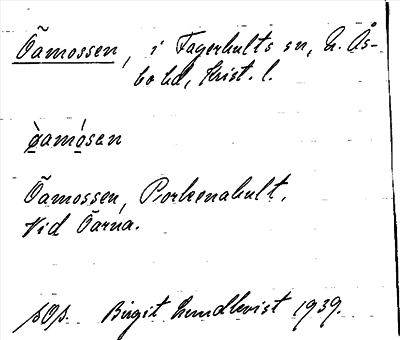 Öamossen, i Fagerhults sn, N. Ås-
bo hd, Krist. l.
ø̀amósen
Öamossen, Porkenahult.
Vid Öarna.
pOp. Birgit Lundkvist 1939.